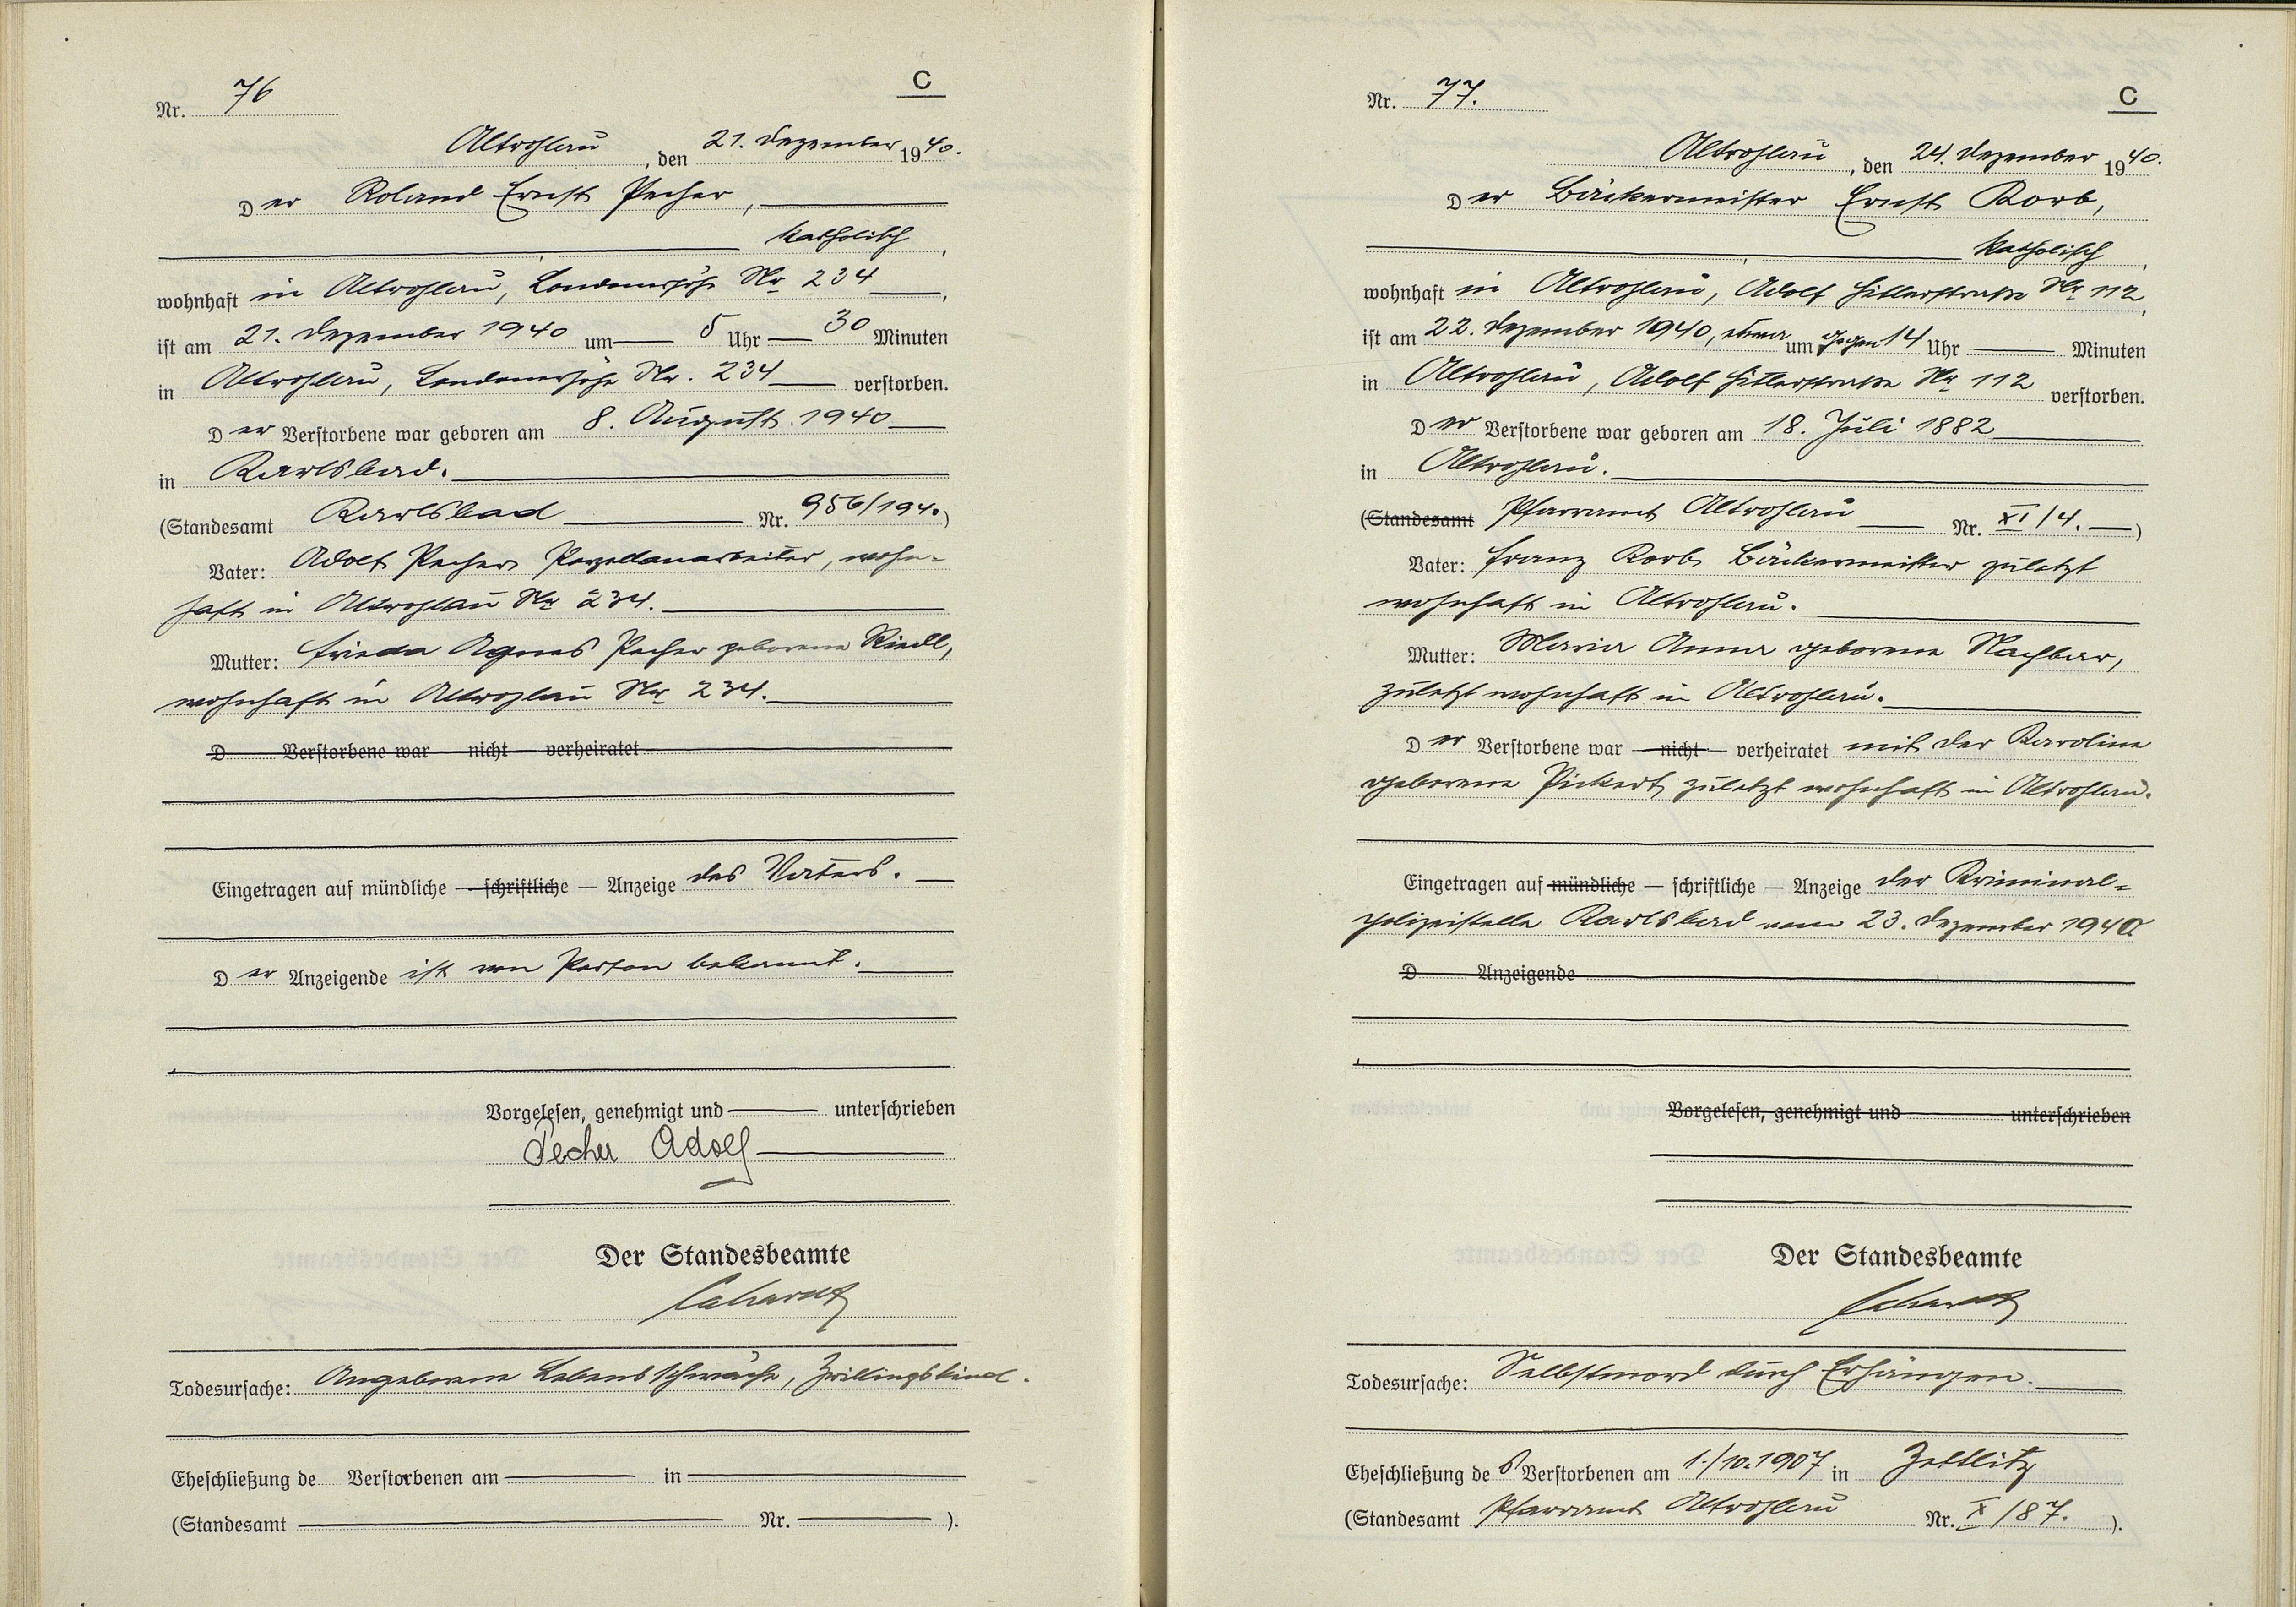 C
Nr. 76
Altrohlau, den 21. Dezember 1940.
Der Roland Ernst Pecher,
katholisch,
wohnhaft in Altrohlau, Nr 234,
ist am 21. Dezember 1940 um 5 Uhr 30 Minuten
in Altrohlau, Nr. 234 verstorben.
Der Verstorbene war geboren am 8. August 1940
in Karlsbad.
(Standesamt Karlsbad Nr. 956/1940)
Vater: Adolf Pecher Porzellanarbeiter, wohn-
haft in Altrohlau Nr 234.
Mutter: Frieda Agnes Pecher geborene Riedl,
wohnhaft in Altrohlau Nr 234.
D Verstorbene war nicht verheiratet
Eingetragen auf mündliche — schriftliche — Anzeige des Vaters.
Der Anzeigende ist von Person bekannt.
Vorgelesen, genehmigt und unterschrieben
Pecher Adolf
Der Standesbeamte
Todesursache: Angeborene Lebensschwäche, Zwillingskind.
Eheschließung de Verstorbenen am in
(Standesamt Nr. ).
C
Nr. 77.
Altrohlau, den 24. Dezember 1940.
Der Bäckermeister Ernst Korb,
katholisch,
wohnhaft in Altrohlau, Adolf Hitlerstraße Nr 112,
ist am 22. Dezember 1940, etwa um gegen 14 Uhr Minuten
in Altrohlau, Adolf Hitlerstraße Nr 112 verstorben.
Der Verstorbene war geboren am 18. Juli 1882
in Altrohlau.
(Standesamt Pfarramt Altrohlau Nr. XI/4.)
Vater: Franz Korb Bäckermeister zuletzt
wohnhaft in Altrohlau.
Mutter: Maria Anna geborene Nachbar,
zuletzt wohnhaft in Altrohlau.
Der Verstorbene war — nicht — verheiratet mit der Karoline
geborene Pickert, zuletzt wohnhaft in Altrohlau.
Eingetragen auf mündliche — schriftliche — Anzeige der Kriminal-
polizeistelle Karlsbad vom 23. Dezember 1940
D Anzeigende
Vorgelesen, genehmigt und unterschrieben
Der Standesbeamte
Todesursache: Selbstmord durch Erhängen.
Eheschließung des Verstorbenen am 1./10.1907 in Zettlitz
(Standesamt Pfarramt Altrohlau Nr. X/87. ).